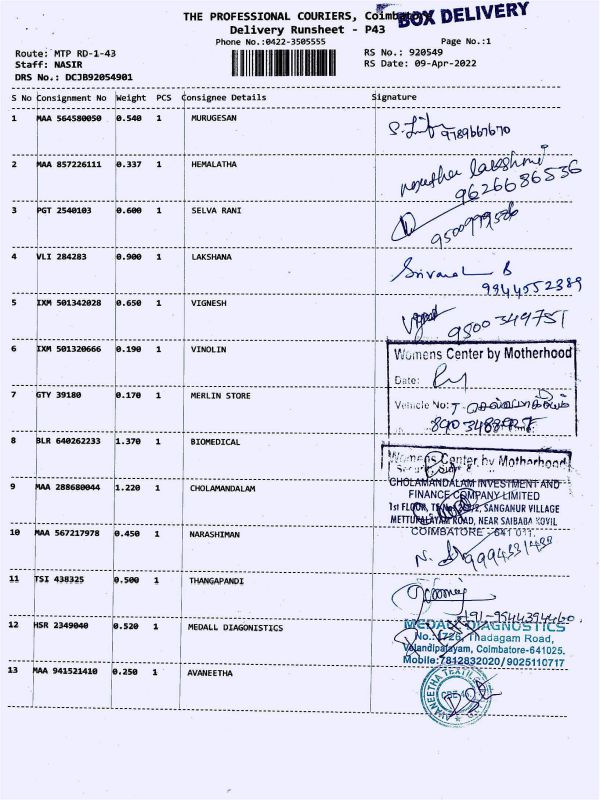 THE PROFESSIONAL COURIERS, Coimbatore
BOX DELIVERY
Delivery Runsheet - P43
Phone No.:0422-3505555
Page No.:1
Route: MTP RD-1-43
RS No.: 920549
Staff: NASIR
RS Date: 09-Apr-2022
DRS No.: DCJB92054901
S No Consignment No Weight PCS Consignee Details Signature
1 MAA 564580050 0.540 1 MURUGESAN
9789667670
2 MAA 857226111 0.337 1 HEMALATHA
lakshmi
9626686536
3 PGT 2540103 0.600 1 SELVA RANI
4 VLI 284283 0.900 1 LAKSHANA
9944552389
5 IXM 501342028 0.650 1 VIGNESH
9500349751
6 IXM 501320666 0.190 1 VINOLIN
Womens Center by Motherhood
Date:
7 GTY 39180 0.170 1 MERLIN STORE
Vehicle No:
8 BLR 640262233 1.370 1 BIOMEDICAL
Womens Center by Motherhood
9 MAA 288680044 1.220 1 CHOLAMANDALAM
CHOLAMANDALAM INVESTMENT AND
FINANCE COMPANY LIMITED
1st FLOOR, SANGANUR VILLAGE
METTUPALAYAM ROAD, NEAR SAIBABA KOVIL
COIMBATORE - 641 011.
10 MAA 567217978 0.450 1 NARASHIMAN
11 TSI 438325 0.500 1 THANGAPANDI
12 HSR 2349040 0.520 1 MEDALL DIAGONISTICS
MEDALL DIAGNOSTICS
No.: 1726, Thadagam Road,
Velandipalayam, Coimbatore-641025.
Mobile:7812832020/9025110717
13 MAA 941521410 0.250 1 AVANEETHA